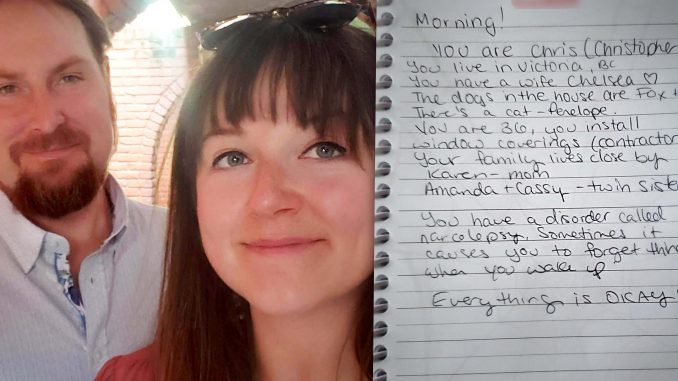 Morning!
You are Chris (Christopher
You live in Victoria, BC
You have a wife Chelsea ♡
The dogs in the house are Fox
There's a cat - Penelope.
You are 36, you install
window coverings (contractor
Your family lives close by
Karen - mom
Amanda + Cassy - twin siste
You have a disorder called
narcolepsy. Sometimes it
causes you to forget thin
when you wake up
Everything is OKAY!